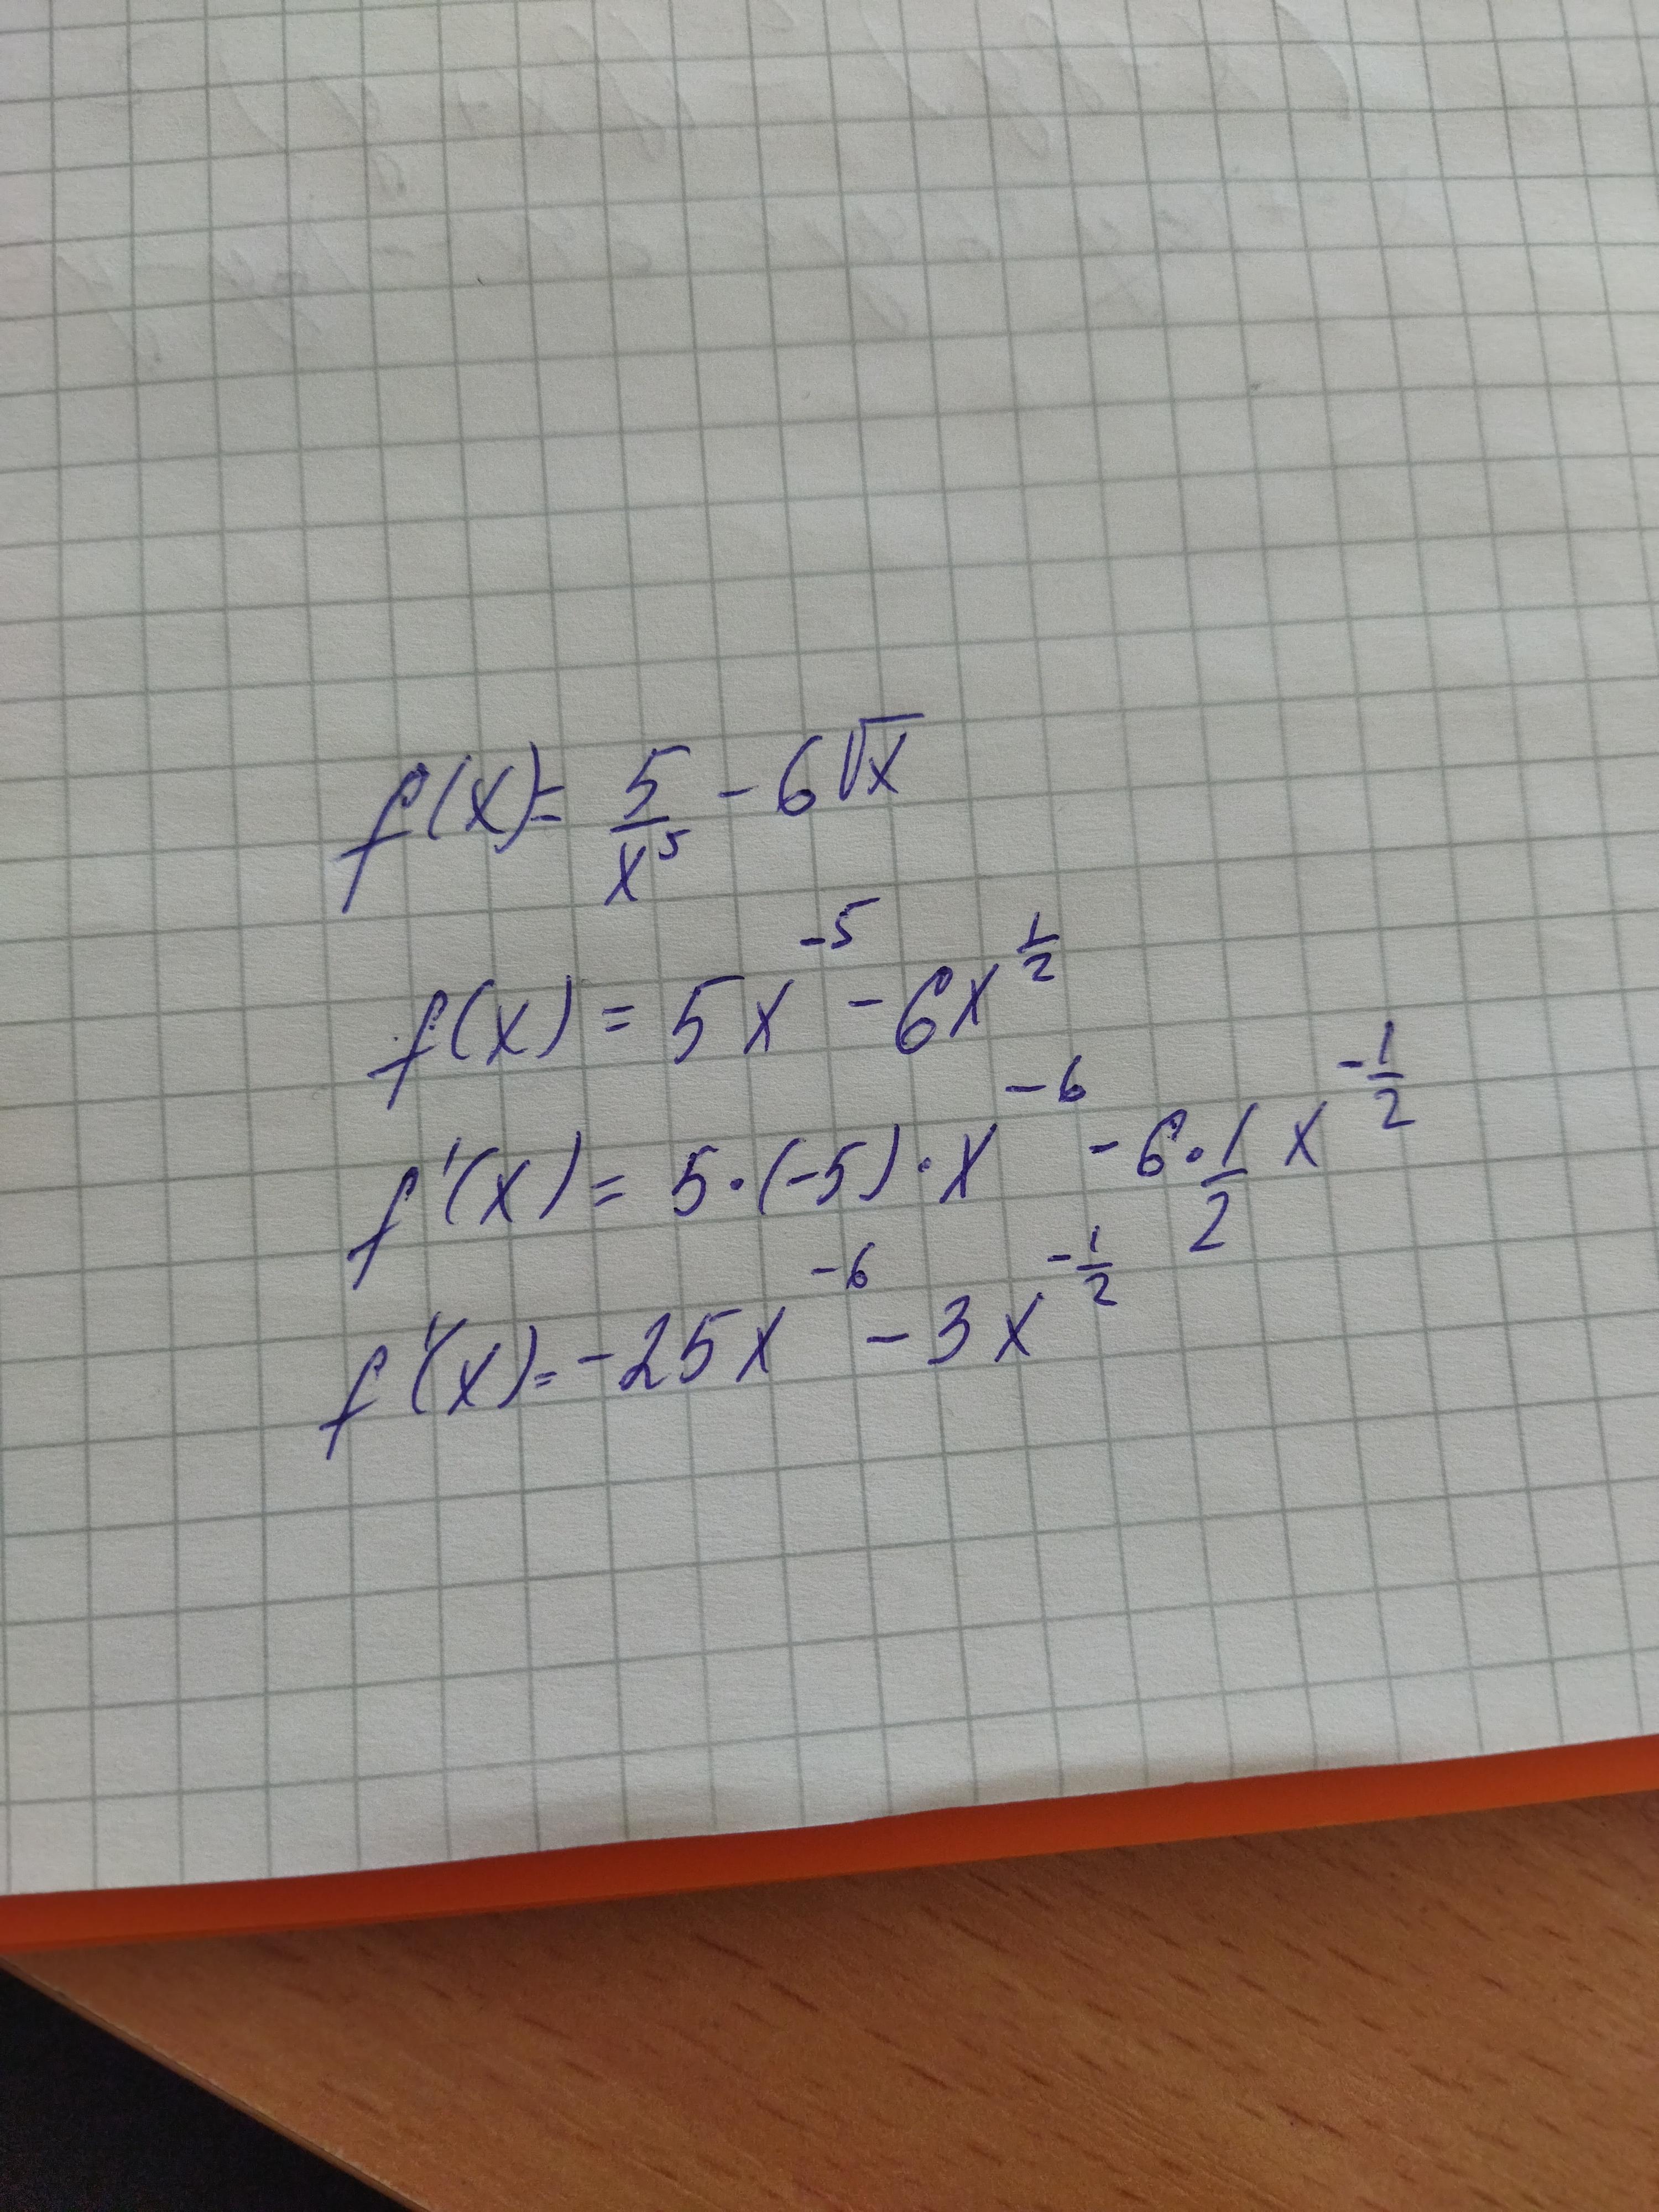 f(x) = 5/x⁵ - 6√x
f(x) = 5x⁻⁵ - 6x^(1/2)
f'(x) = 5·(-5)·x⁻⁶ - 6·1/2 x^(-1/2)
f'(x) = -25x⁻⁶ - 3x^(-1/2)